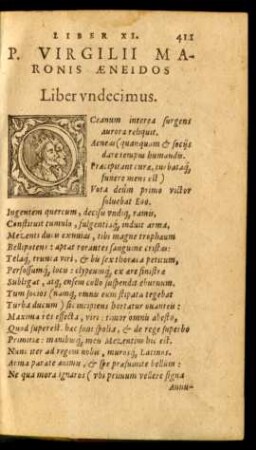 LIBER XI. 411
P. VIRGILII MA-
RONIS ÆNEIDOS
Liber vndecimus.
OCeanum interea surgens
aurora reliquit.
Aeneas (quanquam & socijs
dare tempus humandis
Præcipitant curæ, turbataq́;
funere mens est)
Vota deûm primo victor
soluebat Eoo.
Ingentem quercum, decisis vndiq; ramis,
Constituit tumulo, fulgentiaq́; induit arma,
Mezenti ducis exuuias, tibi magne trophæum
Bellipotens: aptat rorantes sanguine cristas:
Telaq́; trunca viri, & bis sex thoraca petitum,
Perfossumq́; locis: clypeumq́; ex ære sinistræ
Subligat, atq; ensem collo suspendit eburnum.
Tum socios (namq; omnis eum stipata tegebat
Turba ducum) sic incipiens hortatur ouanteis:
Maxima res effecta, viri: timor omnis abesto,
Quod superest. hæc sunt spolia, & de rege superbo
Primitiæ: manibusq́; meis Mezentius hic est.
Nunc iter ad regem nobis, murosq́; Latinos.
Arma parate animis, & spe præsumite bellum:
Ne qua mora ignaros (vbi primum vellere signa
Annu-